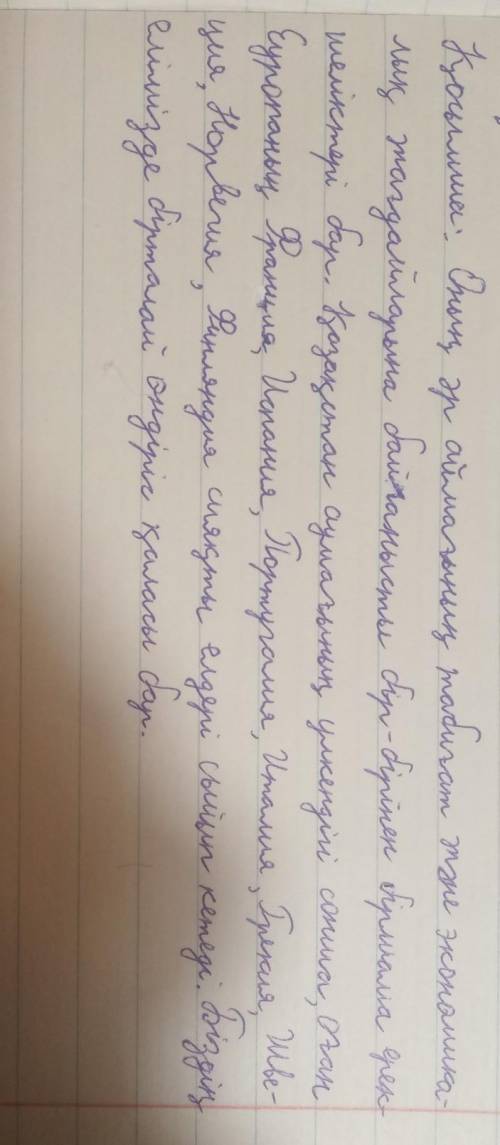 Қосымша: Оның әр аймағының табиғат және экономика-
лық жағдайларына байланысты бір-бірінен біршама ерек-
шеліктері бар. Қазақстан аумағының үлкендігі сонша, оған
Еуропаның Франция, Испания, Португалия, Италия, Грекия, Шве-
ция, Норвегия, Финляндия сияқты елдері сыйып кетеді. Біздің
елімізде бірталай өндіріс қаласы бар.